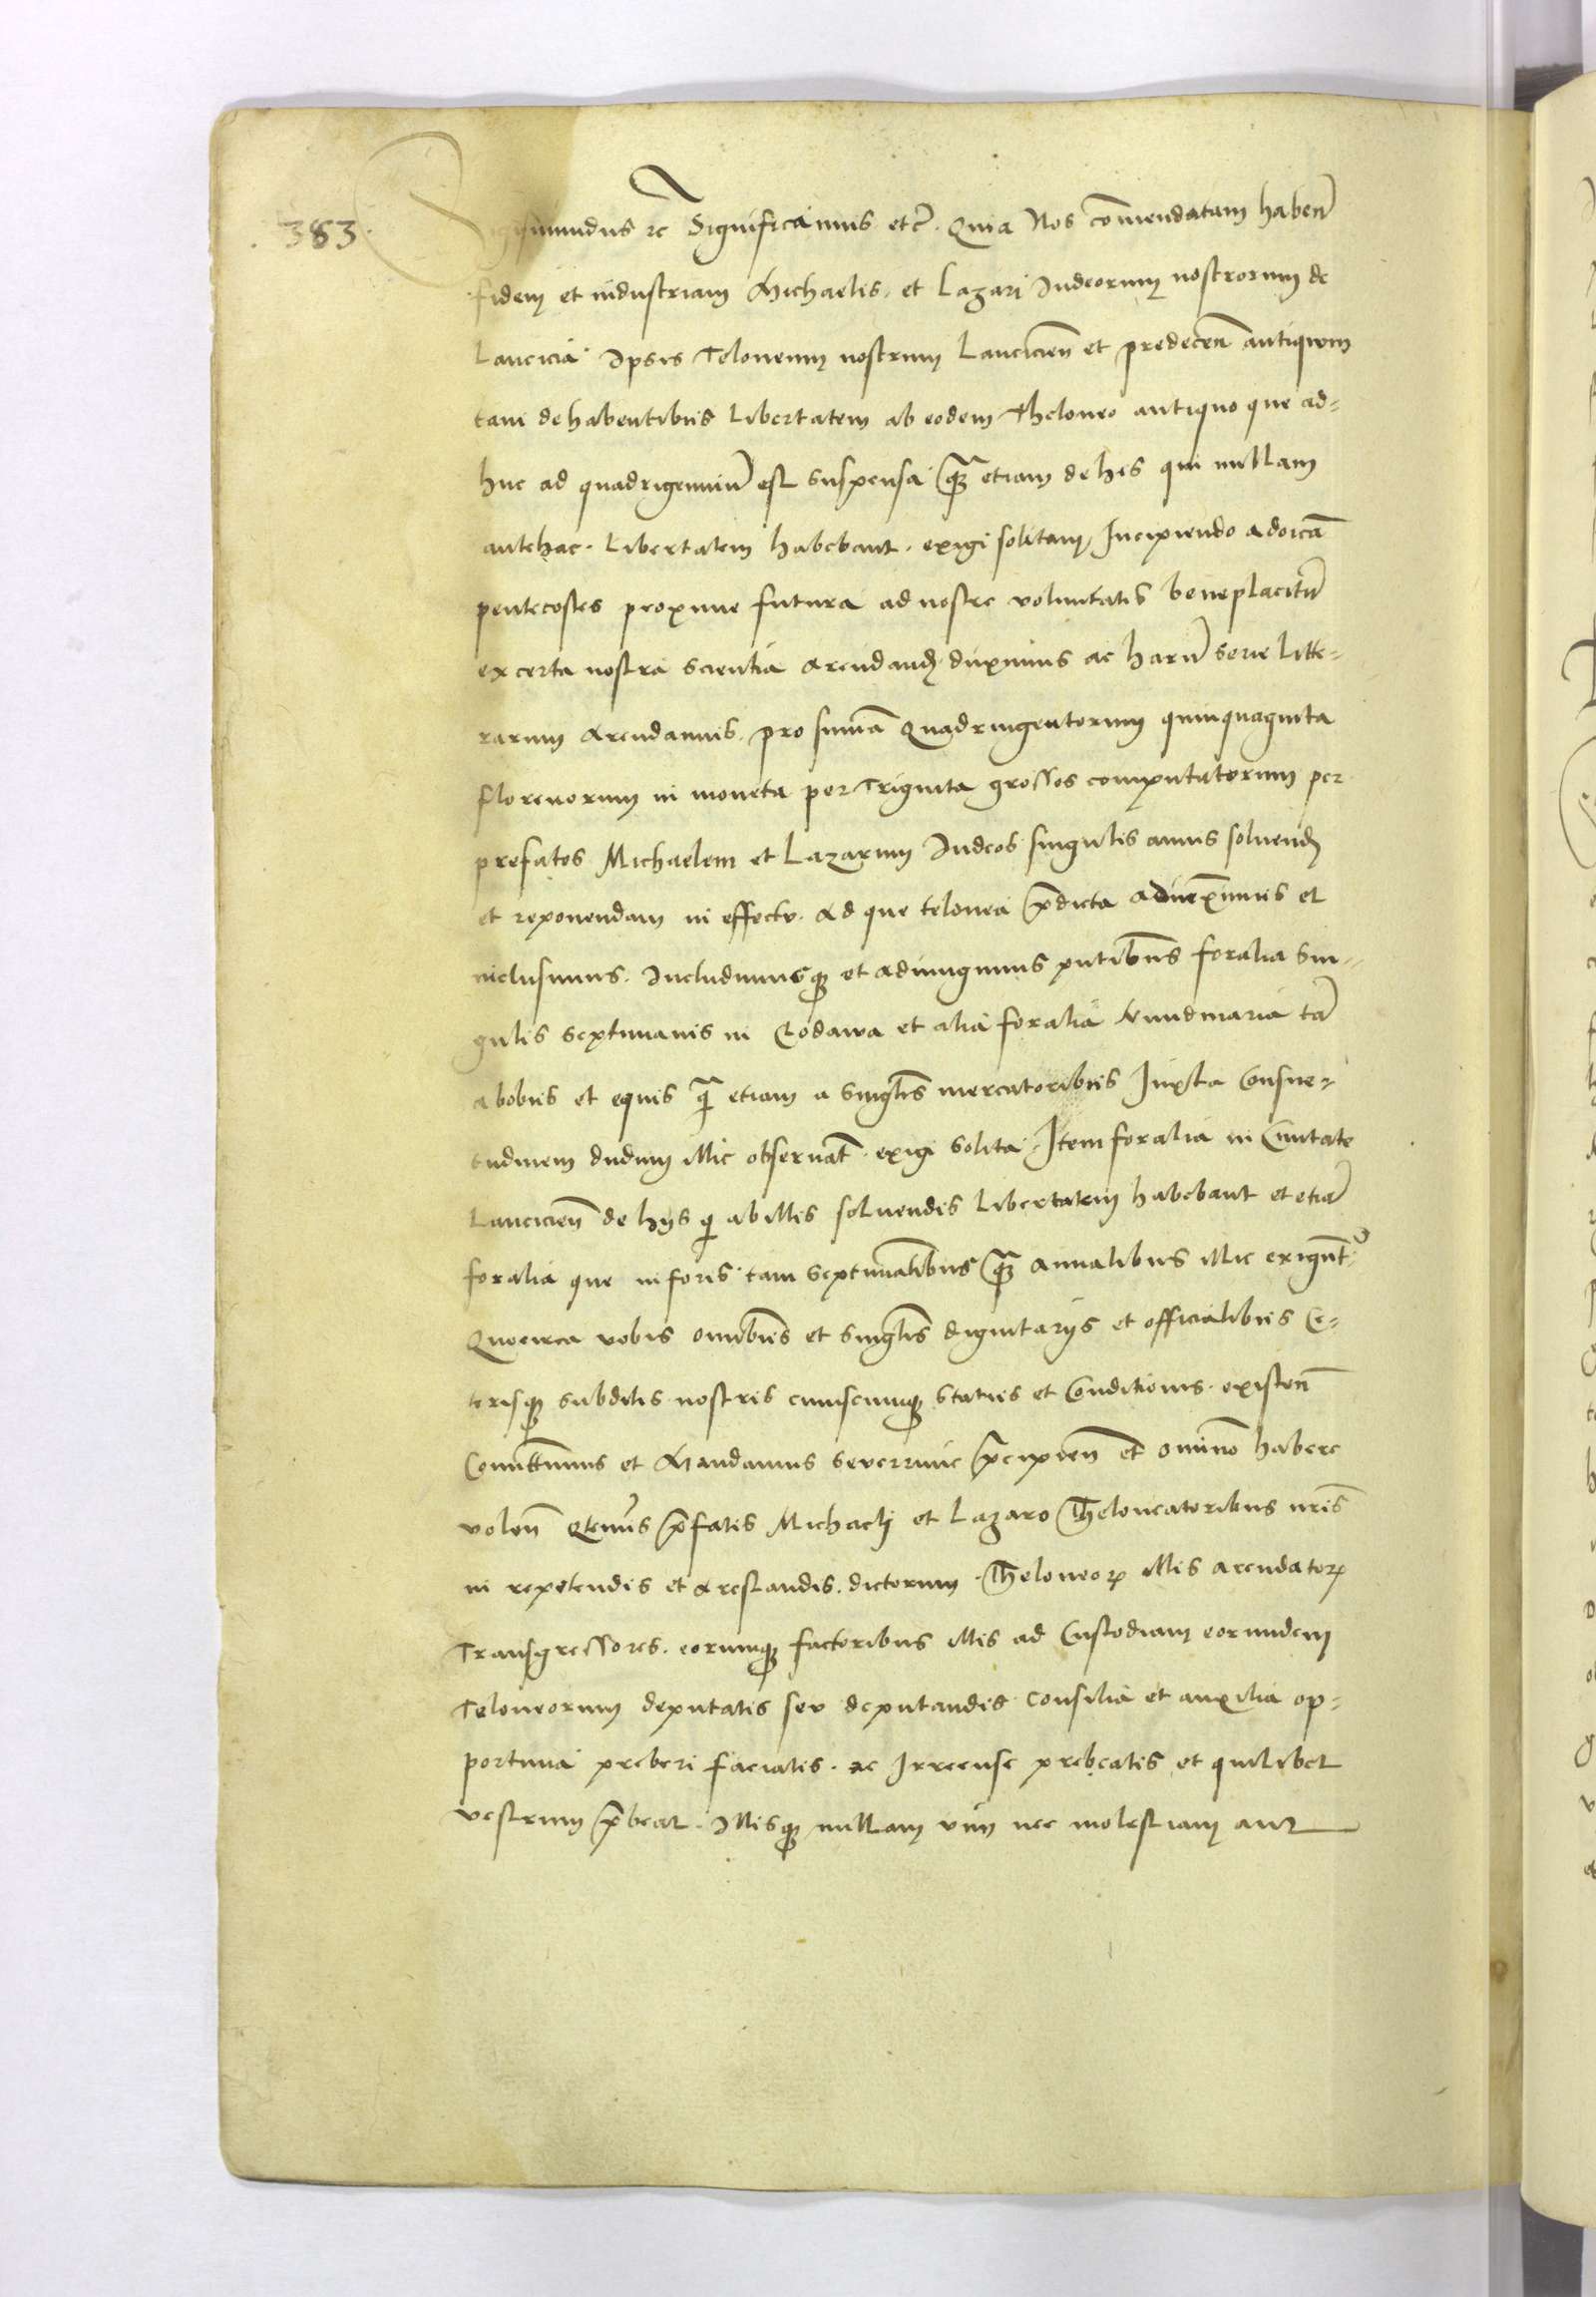 383.
Sigismundus ꝛc Significamus etc̃. Quia Nos com̃endatam haben̄
fidem et industriam Michaelis. et Lazari Iudeorum nostrorum de
Lancicia Ipsis Teloneum nostrum Lancicien̄ et predecen̄ antiquum
tam de habentibus Libertatem ab eodem Theloneo antiquo que ad=
huc ad quadrigenniũ est suspensa q̃ȝ etiam de his qui nullam
antehac. Libertatem habebant. exigi solitam, Incipiendo a doĩca
pentecostes proxime futura ad nostre voluntatis beneplacitũ
ex certa nostra scientia arendanđ duximus ac harũ serie Litte=
rarum Arendamus. pro sum̃a Quadringentorum quinquaginta
florenorum in moneta per Triginta grossos computatorum per
prefatos Michaelem et Lazarum Iudeos singulis annis soluenđ
et reponendam in effectu. Ad que telonea p̃dicta adiũximus et
inclusimus. Includimusqȝ et adiungimus pñtibus foralia sin=
gulis septimanis in Clodawa et alia foralia Nundinaria tã
a bobus et equis q̃ etiam a singl̃is mercatoribus Iuxta Consue=
tudinem dudum illic obseruat̃. exigi solita, Item foralia in Ciuitate
Lancicien̄ de hijs q̃ ab illis soluendis Libertatem habebant et etiã
foralia que in foris tam septimal̃ibus q̃ȝ annalibus illic exigũt᷒.
Quocirca vobis omĩbus et singl̃is dignitarijs et officialibus Ce=
terisqȝ subditis nostris cuiuscumqȝ status et Conditionis. existen̄
Com̃ittimus et Mandamus seuerrime p̃cipien̄ et omĩno habere
volen̄ q̃tenus p̃fatis Michaeli et Lazaro Theloneatoribus nr̃is
in repetendis et arestandis. dictorum Theloneoꝝ illis arendatoꝝ
Transgressores. eorumqȝ factoribus illis ad Custodiam eorundem
Teloneorum deputatis seu deputandis Consilia et auxilia op=
portuna preberi faciatis. ac Irrecuse prebeatis et quilibet
vestrum p̃beat. Illisqȝ nullam vim nec molestiam aut